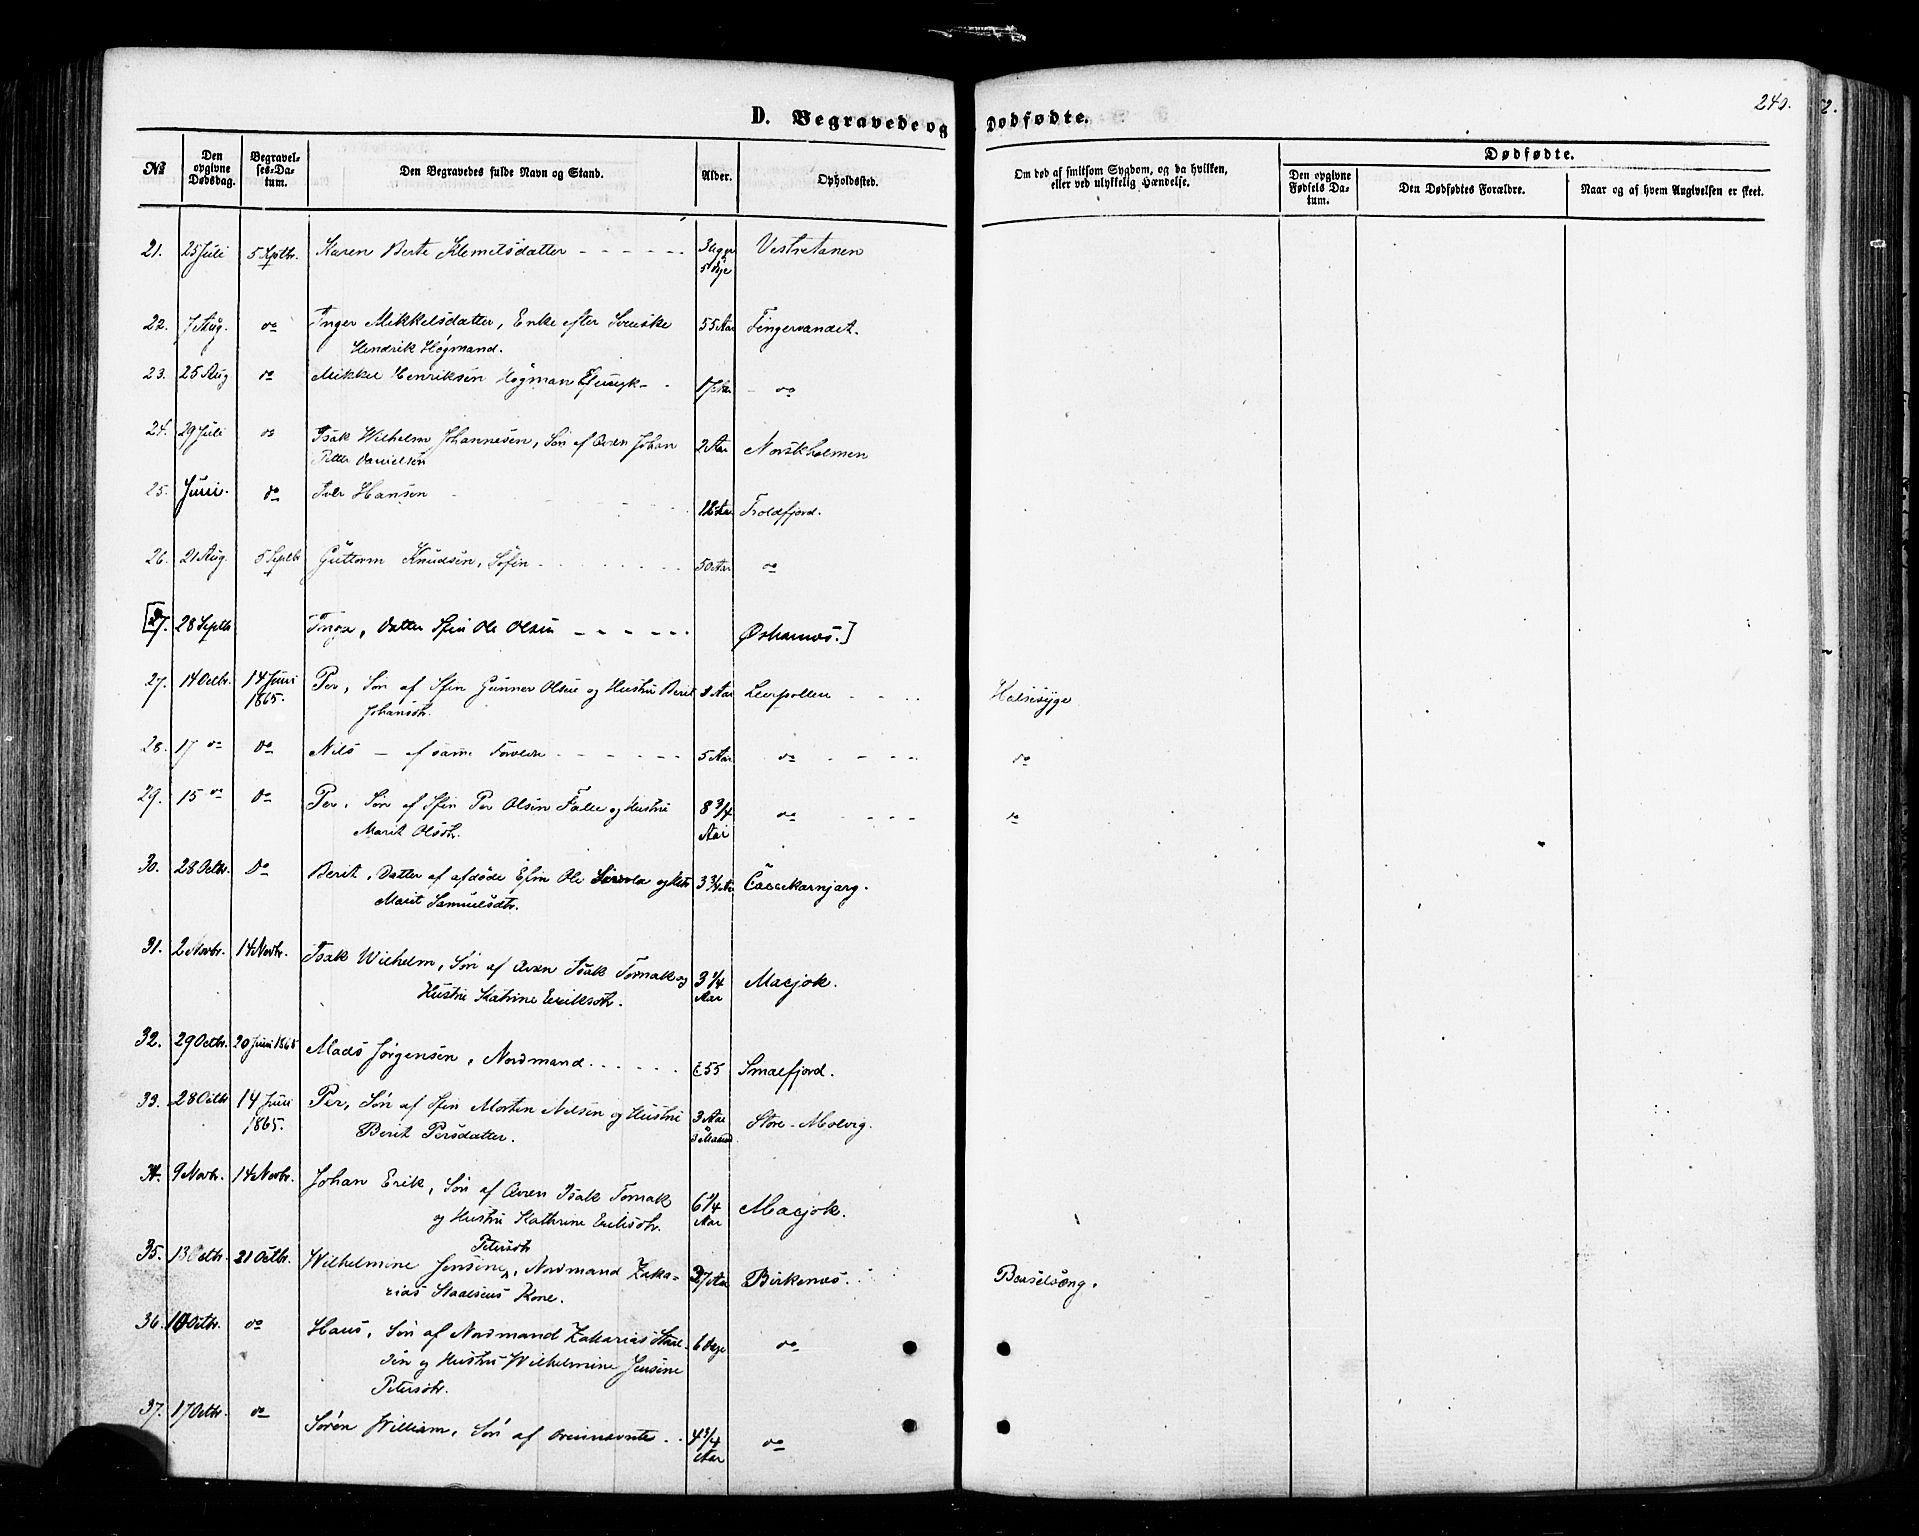 240.
D. Begravede og Dødfødte.
№ Den opgivne Dødsdag. Begravelses-Datum. Den Begravedes fulde Navn og Stand. Alder. Opholdssted. Om død af smitsom Sygdom, og da hvilken, eller ved ulykkelig Hændelse. Dødfødte. Den opgivne Fødsels Datum. Den Dødfødtes Forældre. Naar og af hvem Angivelsen er skeet.
21. 25 Juli 5 Septbr. Karen Berte Klemetsdatter 3 Uger Vestretanen
5 Dge
22. 7 Aug. do Inger Mikkelsdatter, Enke efter Svenske 55 Aar Fingervandet.
Hendrik Høgmand.
23. 25 Aug do Mikkel Henriksen Høgman 17 Aar do
24. 29 Juli do Isak Wilhelm Johannesen, Søn af Qvæn Johan 2 Aar Norskholmen
Petter Danielsen
25. Juni. do Hansen
12 Aar Troldfjord.
26. 21 Aug. 5 Septbr Guttorm Knudsen, Søfin 50 Aar do
[27. 28 Septbr Inga, Datter Sfin Ole Olsen
27. 14 Octbr. 14 Juni Per, Søn af Sfin Gunner Olsen og Hustru Berit 3 Aar Leirpollen Halssyge
1865. Johansdtr.
28. 17 do do Nils — af samme Forældre 5 Aar do do
29. 15 do do Per, Søn af Sfin Per Olsen og Hustru 8 3/4 do do
Marit Olsdtr. Aar
30. 28 Octbr. do Berit, Datter af afdøde Sfin Ole og Marit 3 3/4 Aar
Marit Samuelsdtr.
31. 2 Novbr. 14 Novbr. Isak Wilhelm, Søn af Qvæn Isak Tornak og 3 1/4 Masjok.
Hustru Katrine Eriksdtr. Aar
32. 29 Octbr. 20 Juni 1865 Mads Jørgensen, Nordmand 55 Smalfjord.
33. 28 Octbr 14 Juni Per, Søn af Sfin Morten Nilsen og Hustru 3 Aar Store-Molvig.
1865. Berit Persdatter. 3 Maaned
34. 9 Novbr. 14 Novbr. Johan Erik, Søn af Qvæn Isak Tornak 6 1/4 Masjok.
og Hustru Kathrine Eriksdtr. Aar
Petersdtr
35. 13 Octbr. 21 Octbr. Wilhelmine Jensine, Nordmand Zaka- 37 Aar Birkenæs. Barselsæng.
rias Staalsens Kone.
36. 10 Octbr. do Hans, Søn af Nordmand Zakarias Staal- 6 Dage do
sen og Hustru Wilhelmine Jensine
Petersdtr.
37. 17 Octbr. do Søren William, Søn af ovennævnte 4 3/4 do
Aar